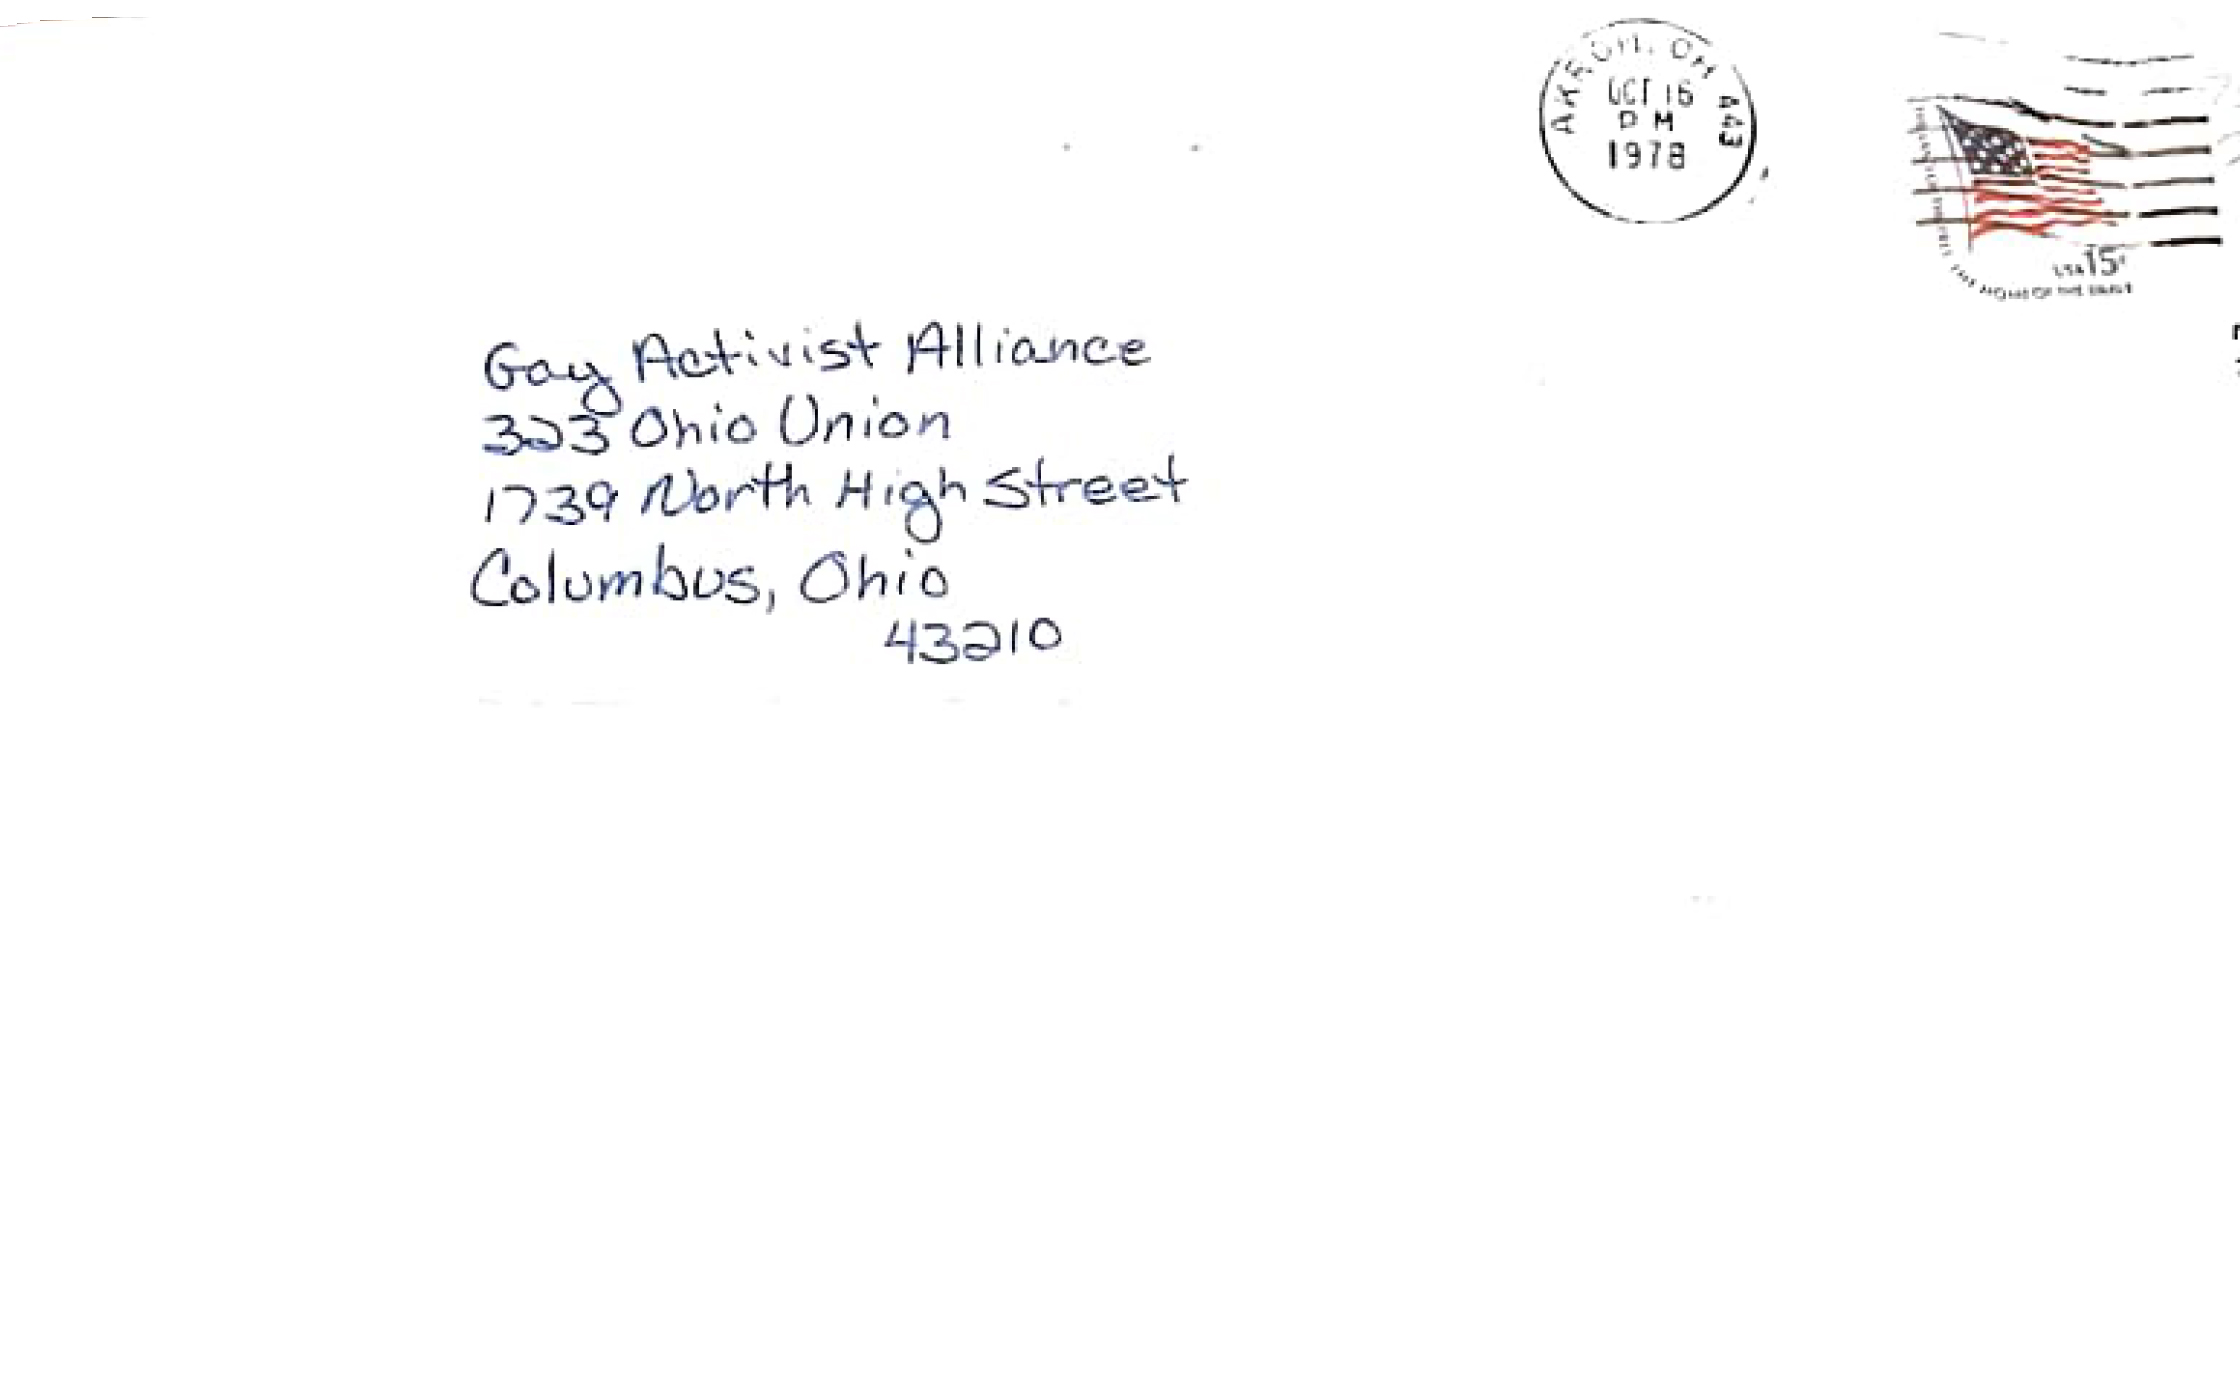 AKRON, OH 443
OCT 16
PM
1978
USA 15c
THE HOME OF THE BRAVE
Gay Activist Alliance
323 Ohio Union
1739 North High Street
Columbus, Ohio
43210